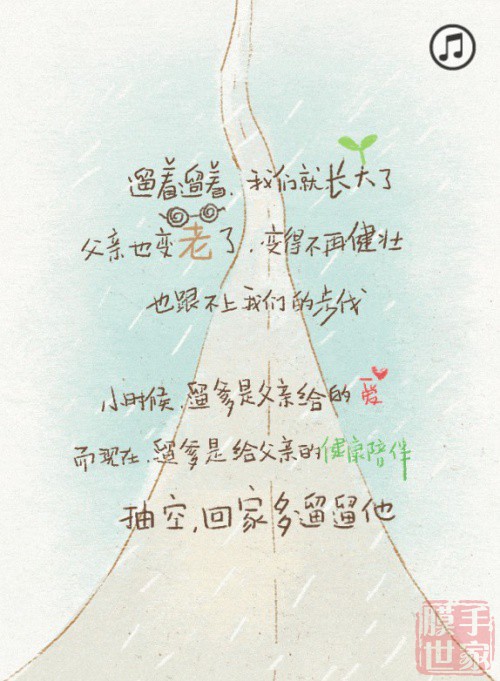 遛着遛着，我们就长大了
父亲也变老了，变得不再健壮
也跟不上我们的步伐
小时候，遛爹是父亲给的爱
而现在，遛爹是给父亲的健康陪伴
抽空，回家多遛遛他
手模世家